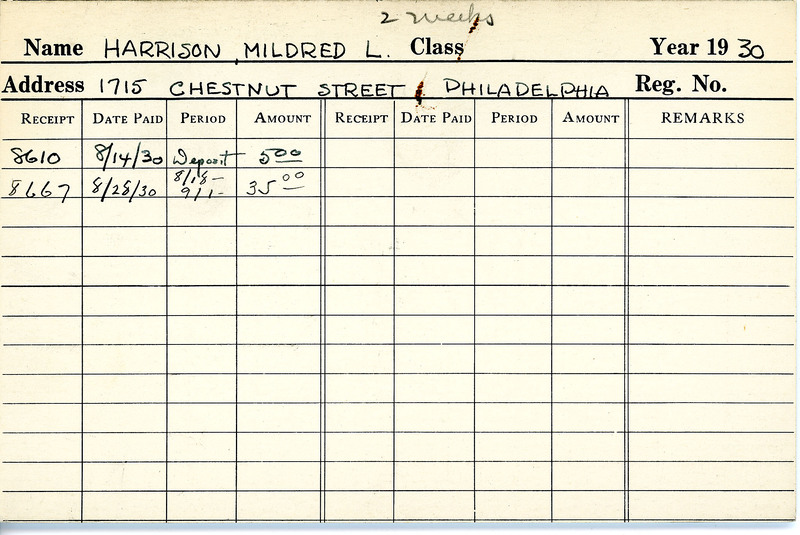 2 weeks
Name HARRISON, MILDRED L. Class Year 1930
Address 1715 CHESTNUT STREET, PHILADELPHIA Reg. No.
RECEIPT DATE PAID PERIOD AMOUNT RECEIPT DATE PAID PERIOD AMOUNT REMARKS
8610 8/14/30 Deposit 5.00
8667 8/28/30 8/18- 9/1- 35.00